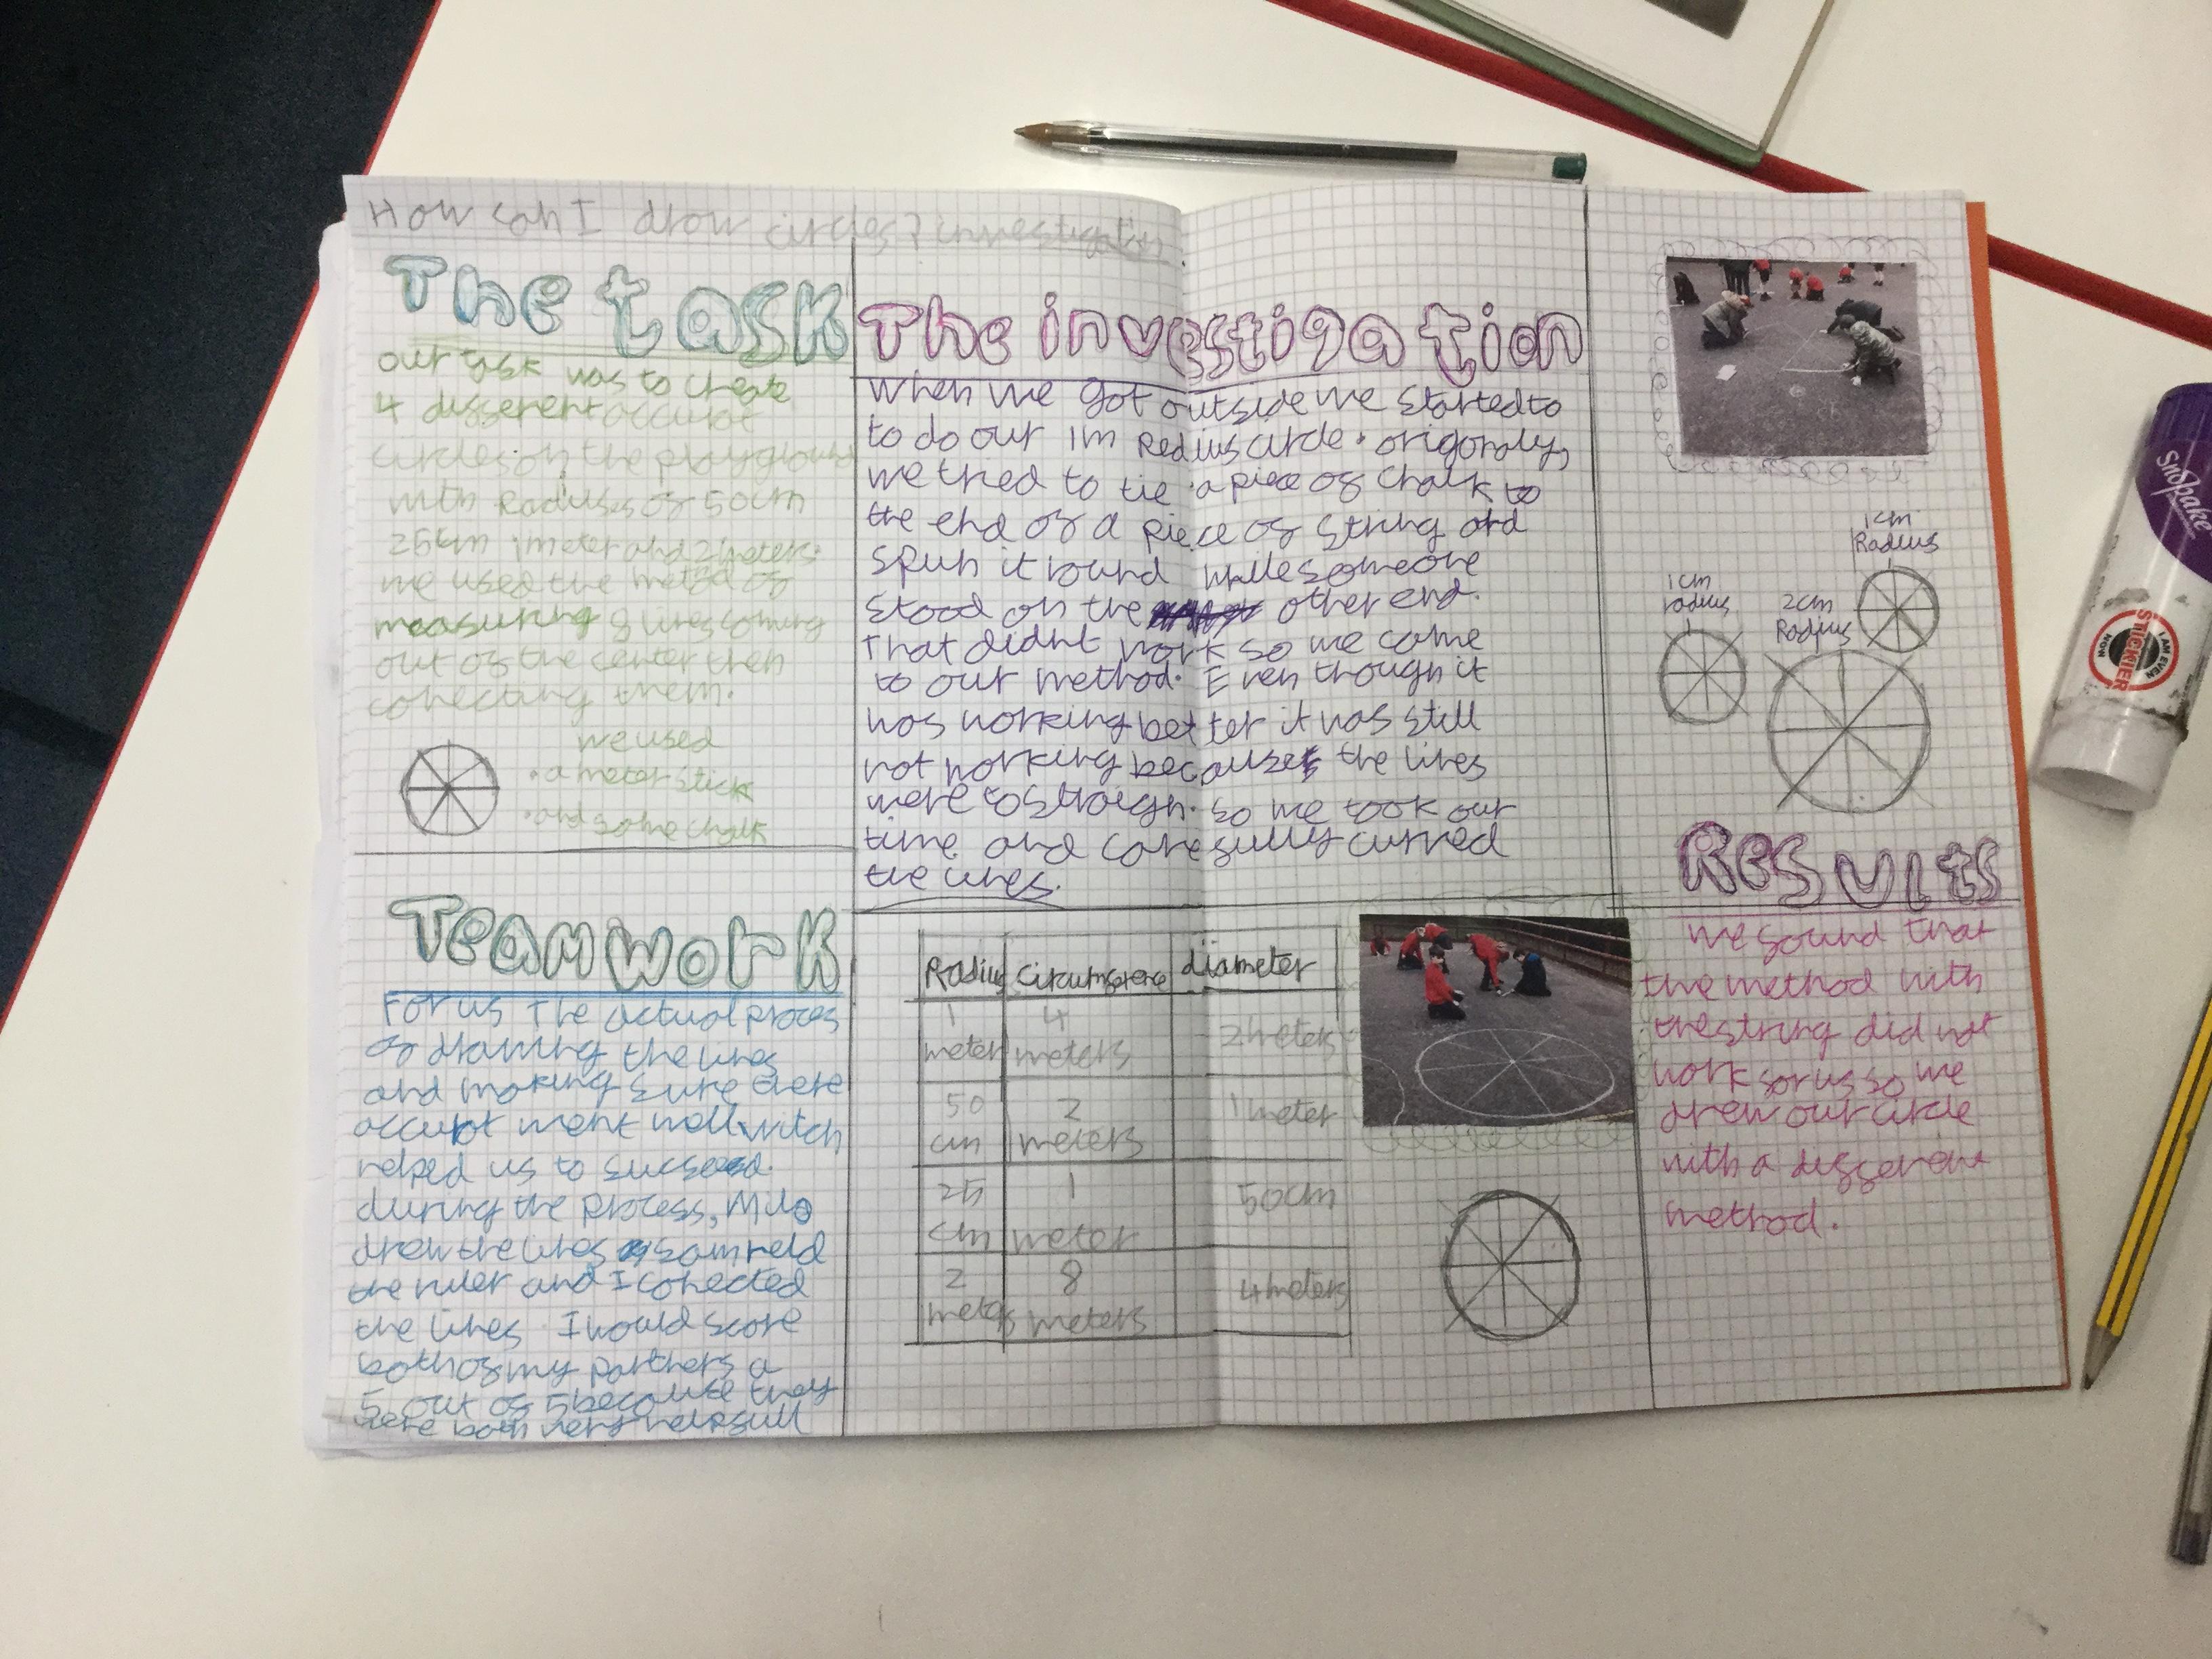 How can I draw circles? investigation
The task
our task was to create
4 different accurat
circles on the playground
with Radiuses of 50cm
25cm 1meter and 2meters.
we used the metod of
measuring 8 lines coming
out of the center then
conecting them.
we used
• a meter stick
• and some chalk
Teamwork
For us The actual proces
of drawing the lines
and making sure there
accurat went well witch
helped us to succeed.
during the process, Milo
drew the lines sam held
the ruler and I conected
the lines I would score
both of my partners a
5 out of 5 because they
were both very helpfull
The investigation
when we got outside we started to
to do our 1m Redius circle. origonaly,
we tried to tie a piece of chalk to
the end of a piece of string and
spun it round while someone
stood on the other end.
That didnt work so we came
to our method. Even though it
was working better it was still
not working because the lines
were to straigh. so we took our
time and carefully curved
the lines.
Radius circumference diameter
1 meter 4 meters 2meters
50 cm 2 meters 1meter
25 cm 1 meter 50cm
2 meters 8 meters 4meters
1cm
Radius
1cm
radius
2cm
Radius
Results
we found that
the method with
the string did not
work for us so we
drew our circle
with a different
method.
Snopake
I AM EVEN
STICKIER
NOW